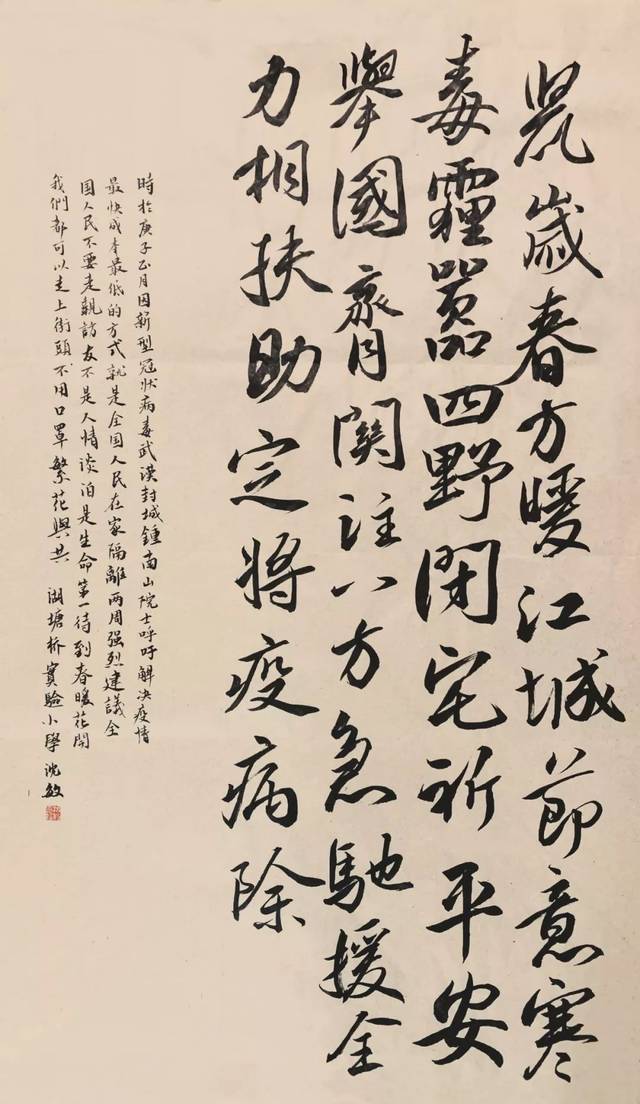 鼠歲春方暖江城節意寒
毒霾囂四野閉宅祈平安
舉國齊關註八方急馳援全
力相扶助定將疫病除
時於庚子正月因新型冠狀病毒武漢封城鍾南山院士呼吁解决疫情
最快成本最低的方式就是全国人民在家隔離两周强烈建議全
国人民不要走親訪友不是人情淡泊是生命第一待到春暖花開
我們都可以走上街頭不用口罩繁花與共 湖塘桥實驗小學 沈敏